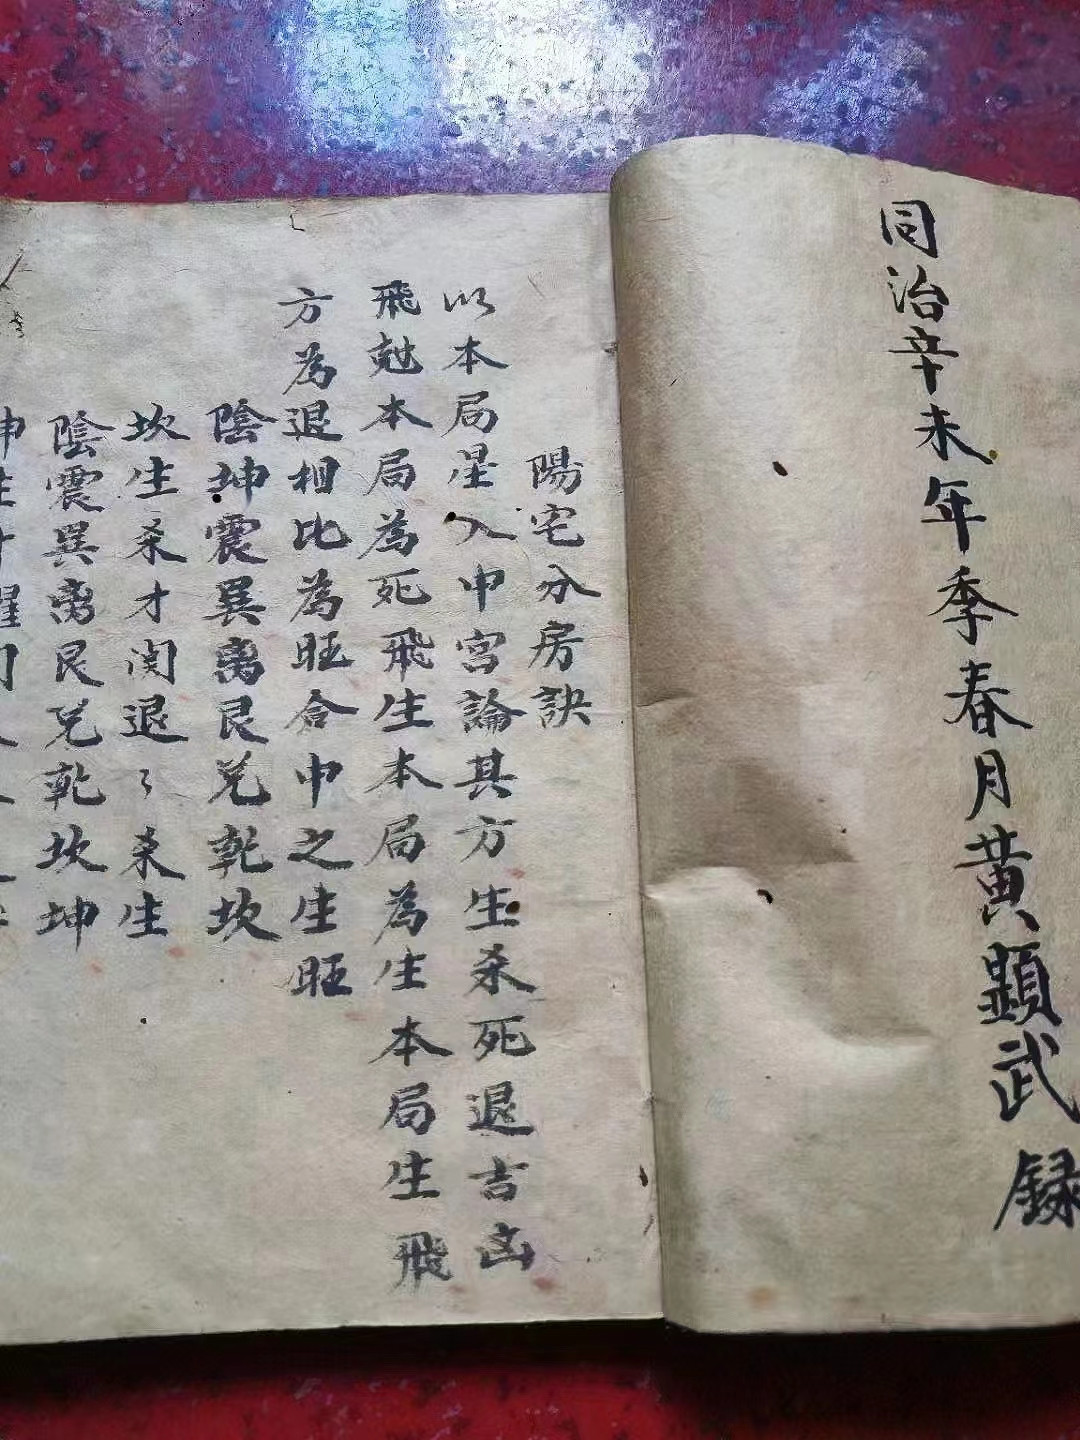 同治辛未年季春月黃顯武録
陽宅分房訣
以本局星入中宮論其方生杀死退吉凶
飛尅本局為死飛生本局為生本局生飛
方為退相比為旺合中之生旺
陰坤震巽离艮兌乾坎
坎生杀才関退々杀生
陰震巽离艮兌乾坎坤
坤